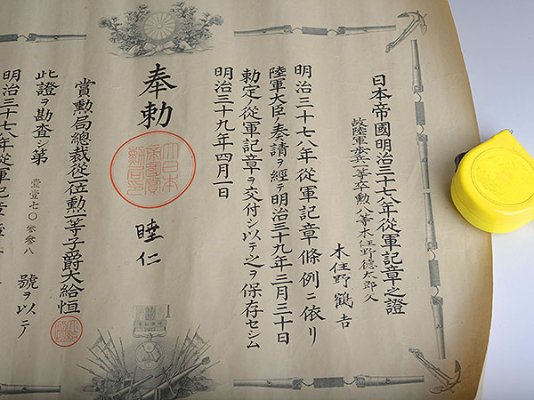 日本帝國明治三十七八年從軍記章之證
故陸軍歩兵一等卒勲八等木住野德太郎父
木住野鶴吉
明治三十七八年從軍記章條例ニ依リ
陸軍大臣ノ奏請ヲ經テ明治三十九年三月三十日
勅定ノ從軍記章ヲ交付シ以テ之ヲ保存セシム
明治三十九年四月一日
奉勅
睦仁
賞勲局總裁從二位勲一等子爵大給恒
此證ヲ勘査シ第
壹壹七〇零零八
號ヲ以テ
明治三十七八年從軍記章